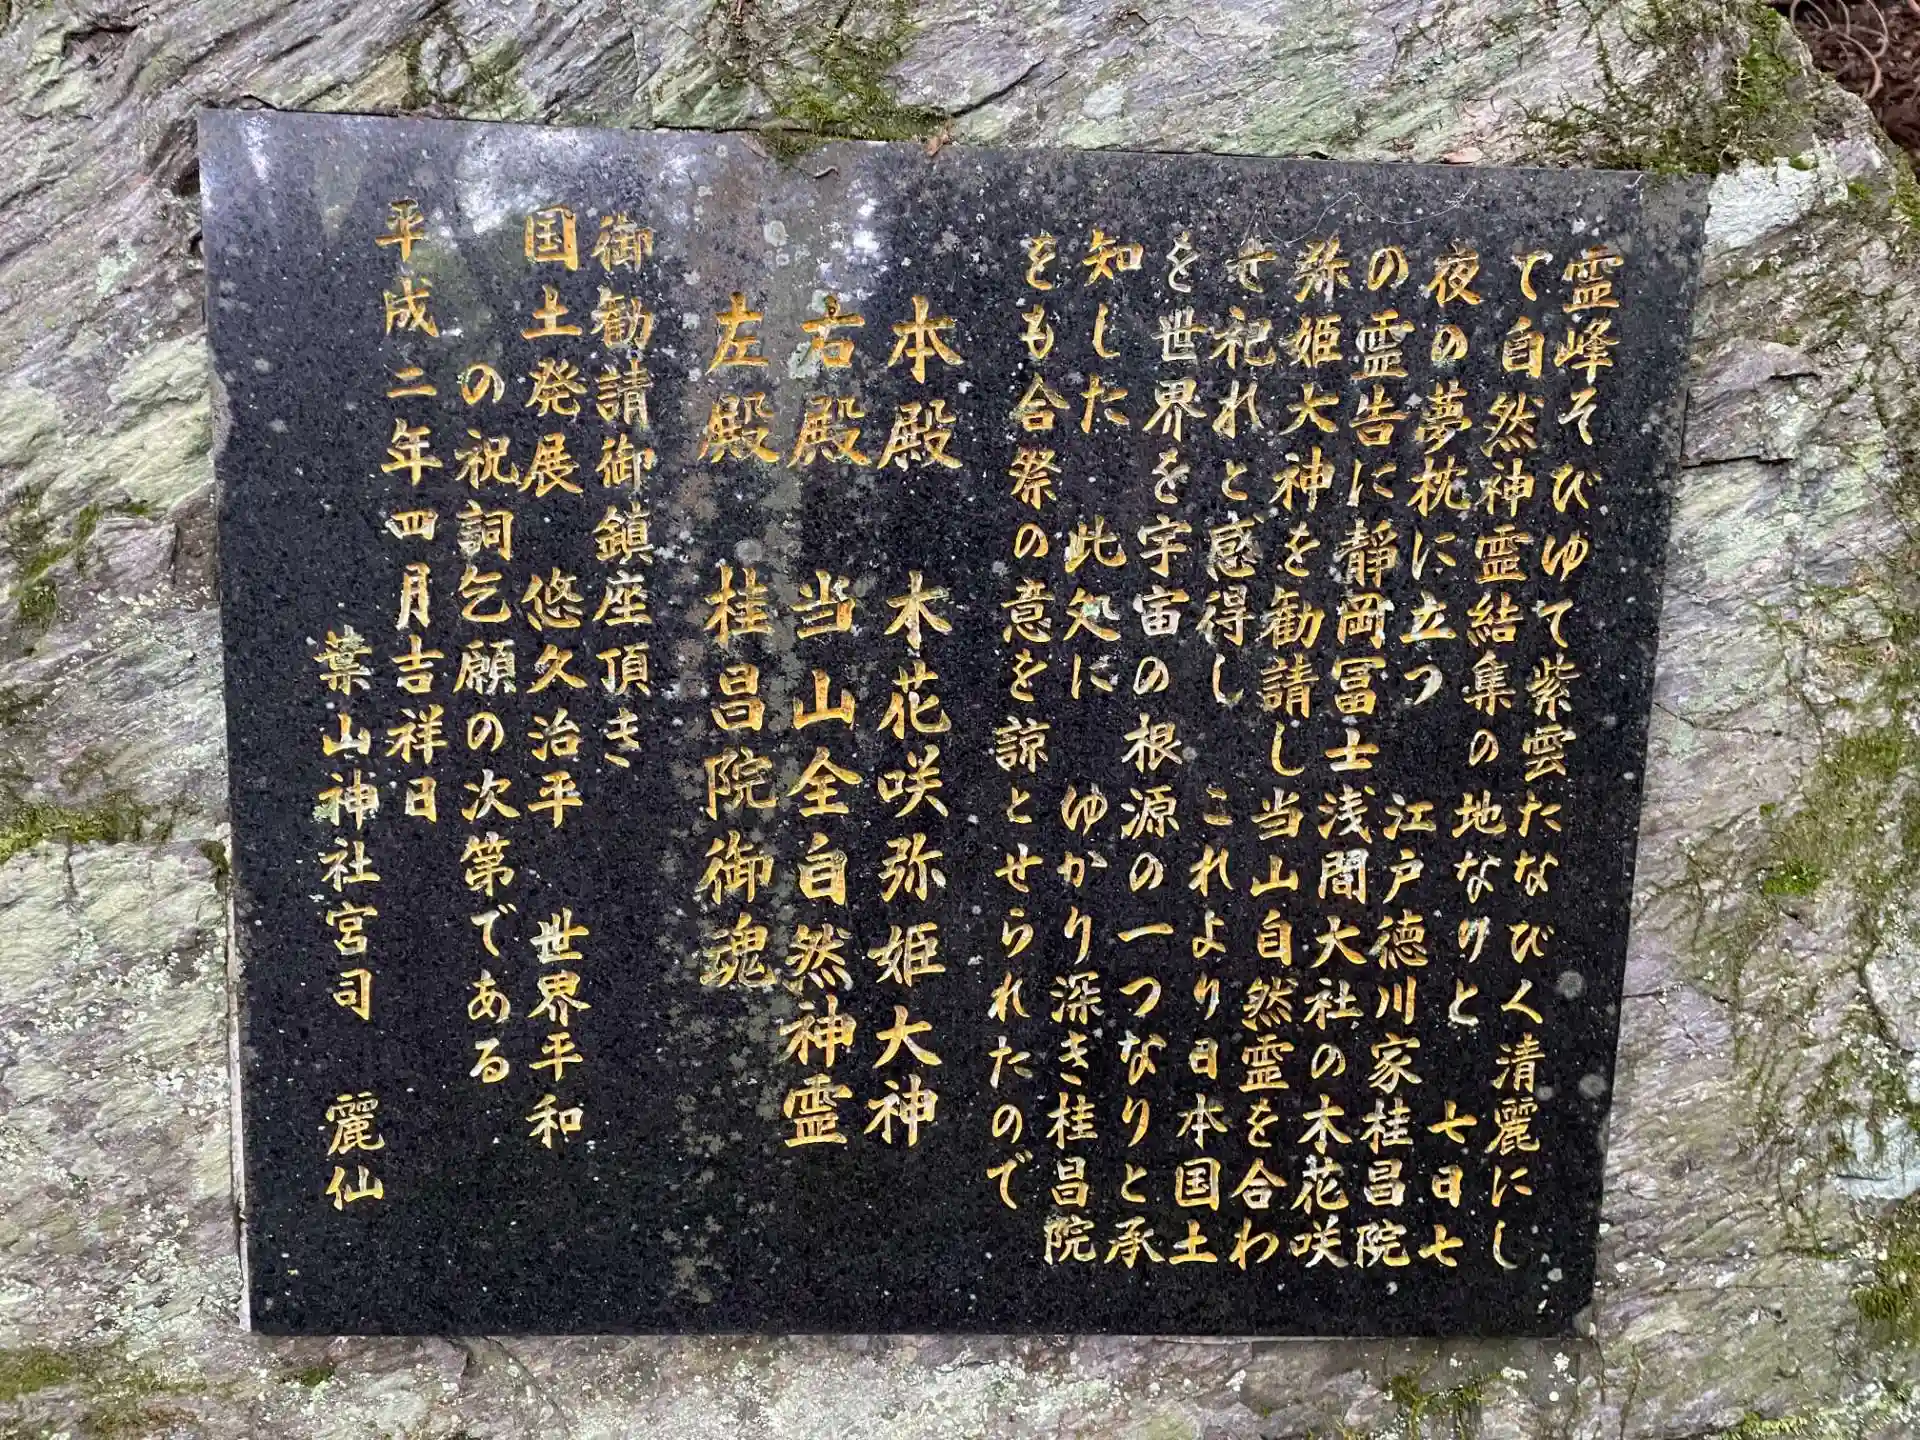 霊峰そびゆて紫雲たなびく清麗にし
て自然神霊結集の地なりと 七日七
夜の夢枕に立つ 江戸徳川家桂昌院
の霊告に静岡冨士浅間大社の木花咲
弥姫大神を勧請し当山自然霊を合わ
せ祀れと感得し これより日本国土
を世界を宇宙の根源の一つなりと承
知した 此処に ゆかり深き桂昌院
をも合祭の意を諒とせられたので
本殿 木花咲弥姫大神
右殿 当山全自然神霊
左殿 桂昌院御魂
御勧請御鎮座頂き
国土発展 悠久治平 世界平和
の祝詞乞願の次第である
平成二年四月吉祥日
葉山神社宮司 麗仙